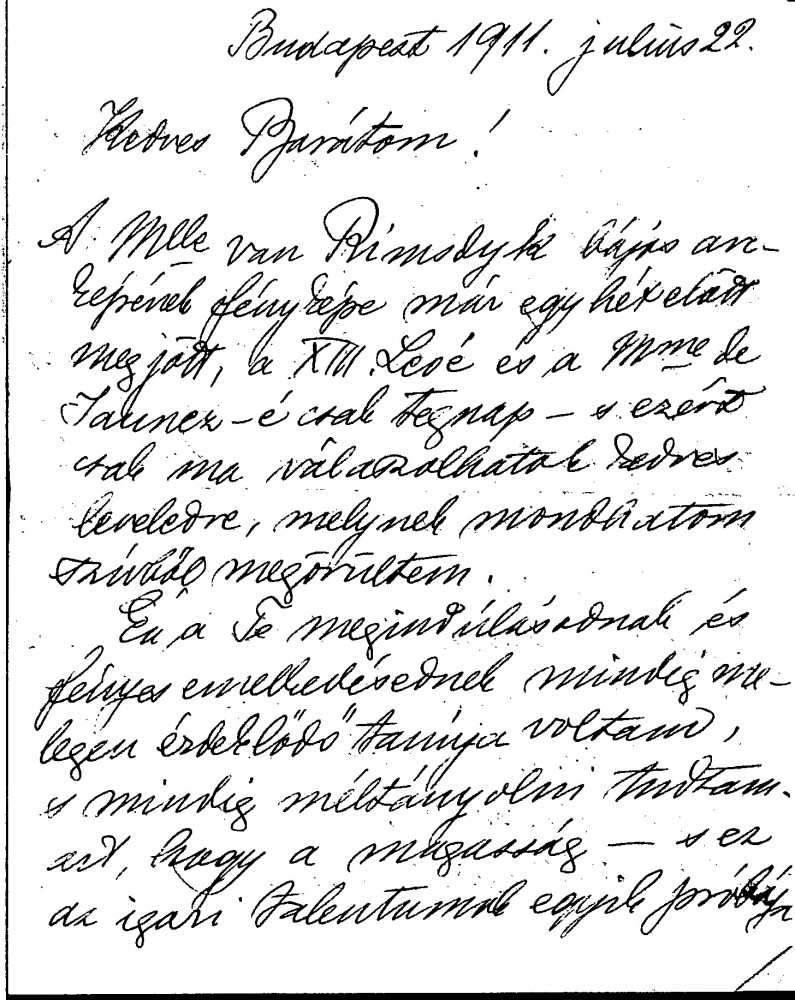 Budapest 1911. július 22.
Kedves Barátom!
A Mlle van Rimsdyk bájos arc-
képének fényképe már egy hét előtt
megjött, a XIII. Leoé és a Mme de
Jaunez-é csak tegnap – s ezért
csak ma válaszolhatok kedves
leveledre, melynek mondhatom
szívből megörültem.
Én a Te megindúlásodnak és
fényes emelkedésednek mindig me-
legen érdeklődő tanúja voltam,
s mindig méltányolni tudtam
azt, hogy a magasság – s ez
az igazi talentumok egyik próbája